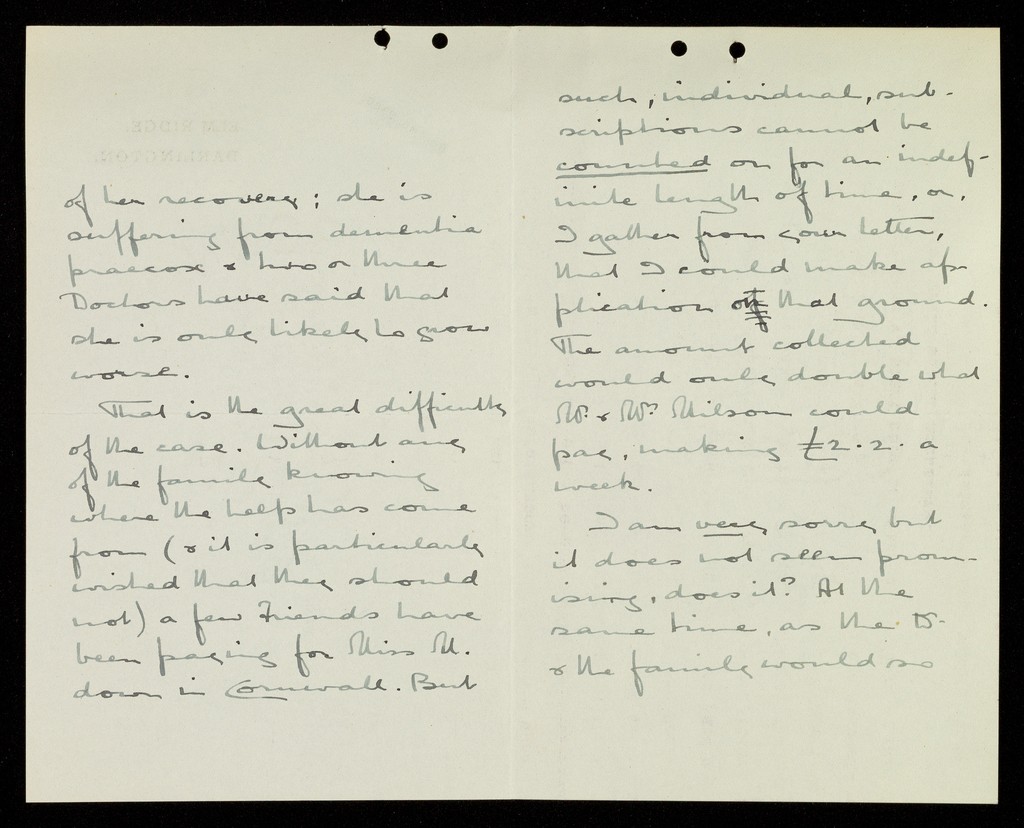 ELM RIDGE.
DARLINGTON.
of her recovery; she is
suffering from dementia
praecox & two or three
Doctors have said that
she is only likely to grow
worse.
That is the great difficulty
of the case. Without any
of the family knowing
where the help has come
from (& it is particularly
wished that they should
not) a few Friends have
been paying for Miss M.
down in Cornwall. But
such, individual, sub-
scriptions cannot be
counted on for an indef-
inite length of time, or,
I gather from your letter,
that I could make ap-
plication on that ground.
The amount collected
would only double what
Mr. & Mrs. Milson could
pay, making £2.2. a
week.
I am very sorry but
it does not seem prom-
ising, does it? At the
same time, as the Dr.
& the family would so